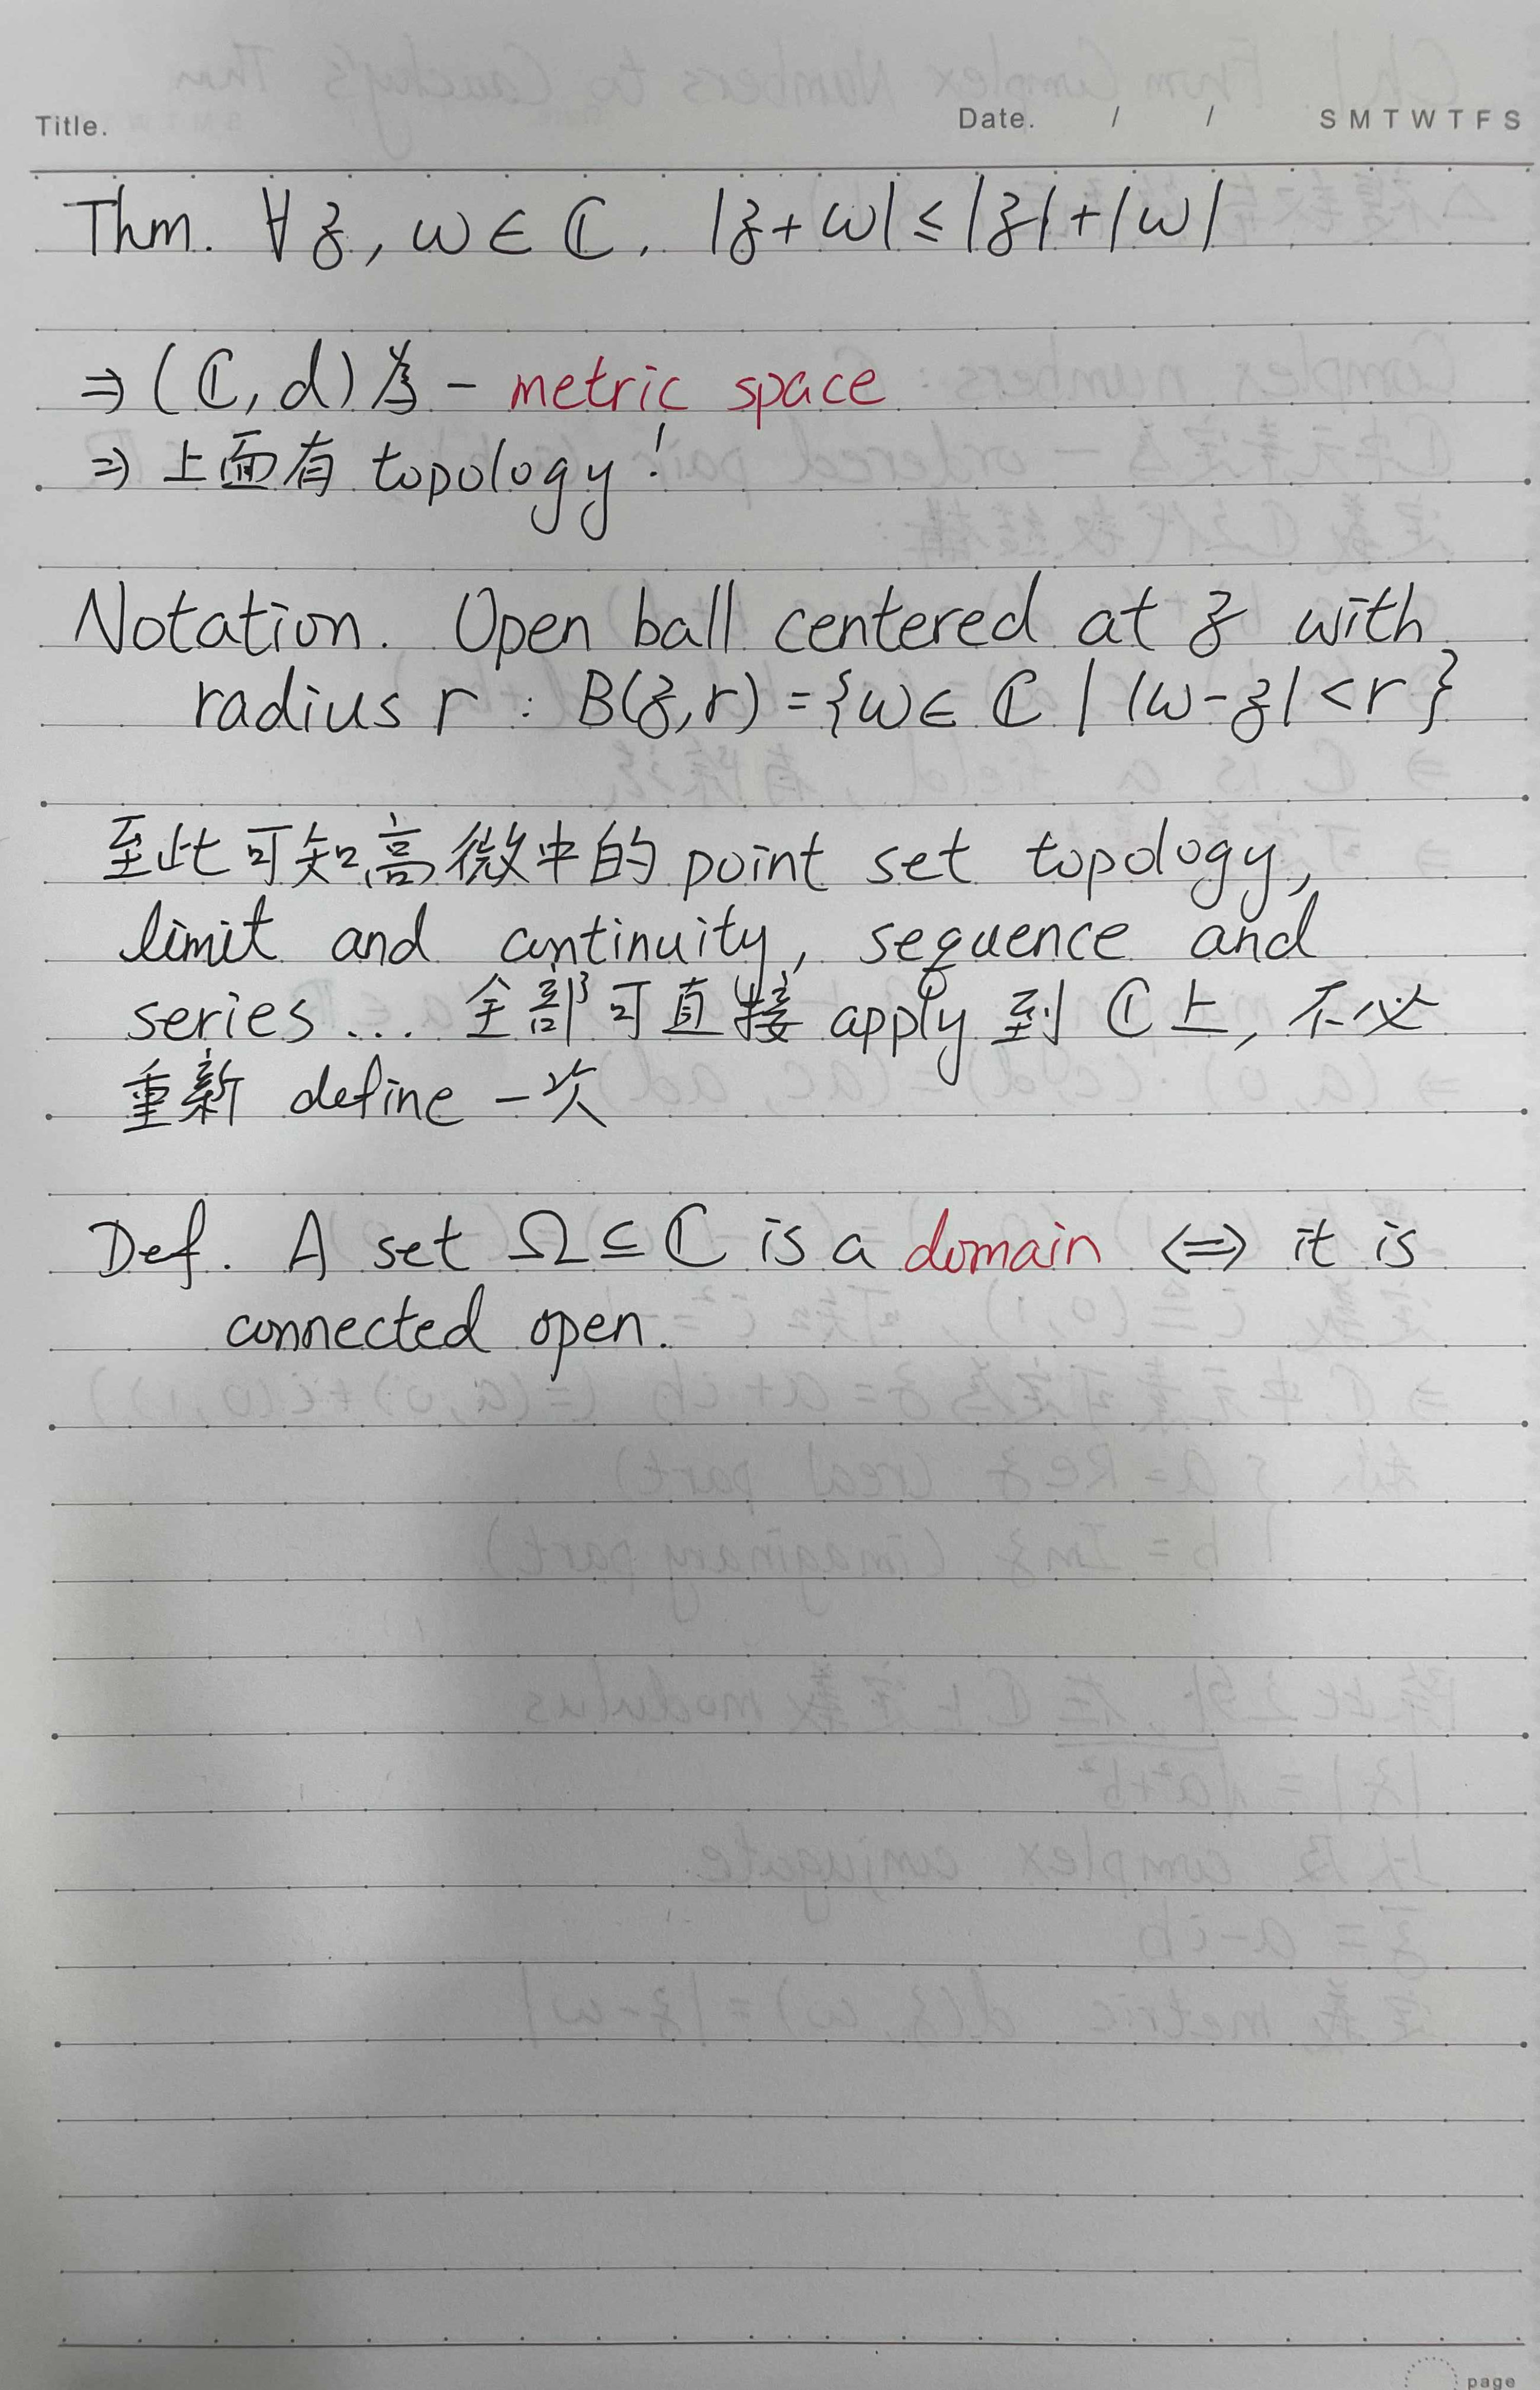 Title.
Date. / / S M T W T F S
Thm. ∀ z, w ∈ ℂ, |z + w| ≤ |z| + |w|
⇒ (ℂ, d) 為一 metric space
⇒ 上面有 topology!
Notation. Open ball centered at z with
radius r : B(z, r) = {w ∈ ℂ | |w - z| < r}
至此可知高微中的 point set topology,
limit and continuity, sequence and
series ... 全部可直接 apply 到 ℂ 上, 不必
重新 define 一次
Def. A set Ω ⊆ ℂ is a domain ⇔ it is
connected open.
page